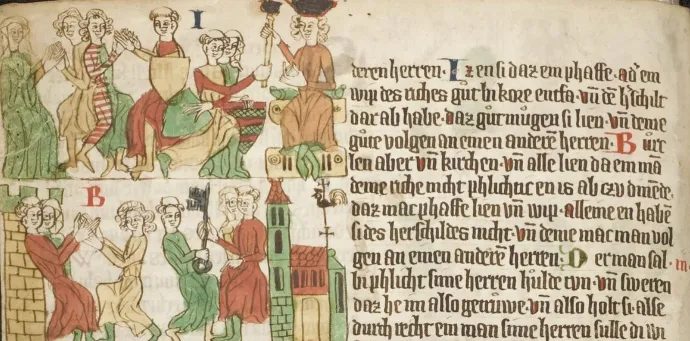 I
B
deren herren · Iz en si daz ein phaffe · ad' ein
wip des riches gut bi kore entfa · vn̄ dē h'schilt
dar ab habe · daz gut mugen si lien · vn̄ deme
gute volgen an einen anderē herren · Bur
len aber vn̄ kirchen · vn̄ alle lien da em mā
deme riche nicht phlichtic en is ab czu
daz mac phaffe lien vn̄ wip · alleine en habē
si des herschildes nicht · vn̄ deme mac man vol
gen an einen anderē herren · Der man sal ·
bi phlicht sime herren hulde tvn · vn̄ sweren
daz he im also getruwe · vn̄ also holt si · alse
durch recht ein man sime herren sulle di wi